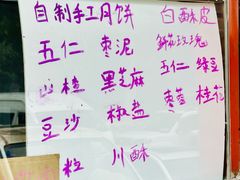 自制手工月饼 白酥皮
五仁 枣泥 鲜花玫瑰
山楂 黑芝麻 五仁 绿豆
豆沙 椒盐 枣蓉 桂花
川酥